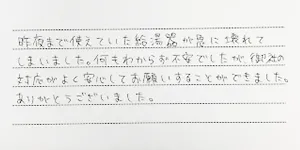 昨夜まで使えていた給湯器が急に壊れて
しまいました。何もわからず不安でしたが御社の
対応がよく安心してお願いすることができました。
ありがとうございました。